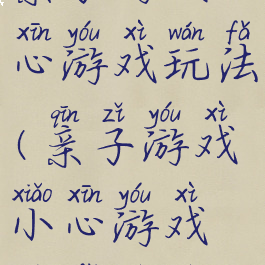 xīn yóu xì wán fǎ
心游戏玩法
qīn zǐ yóu xì
(亲子游戏
xiǎo xīn yóu xì
小心游戏